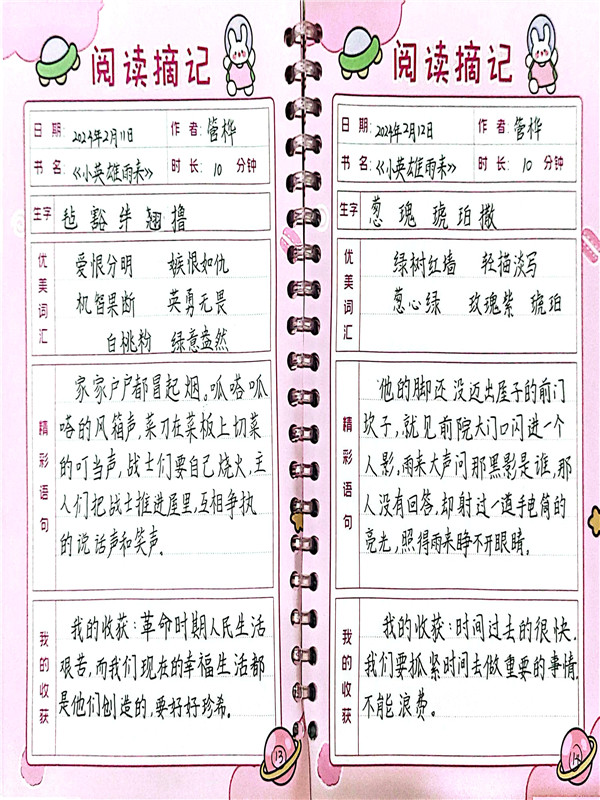 阅读摘记
日期: 2024年2月11日 作者: 管桦
书名: 《小英雄雨来》 时长: 10 分钟
生字 毡 豁 绊 翘 撸
优美词汇
爱恨分明 嫉恨如仇
机智果断 英勇无畏
白桃粉 绿意盎然
精彩语句
家家户户都冒起烟。呱嗒呱
嗒的风箱声,菜刀在菜板上切菜
的叮当声,战士们要自己烧火,主
人们把战士推进屋里,互相争执
的说话声和笑声。
我的收获
我的收获:革命时期人民生活
艰苦,而我们现在的幸福生活都
是他们创造的,要好好珍希。
13
阅读摘记
日期: 2024年2月12日 作者: 管桦
书名: 《小英雄雨来》 时长: 10 分钟
生字 葱 瑰 琥 珀 撒
优美词汇
绿树红墙 轻描淡写
葱心绿 玫瑰紫 琥珀
精彩语句
他的脚还没迈出屋子的前门
坎子,就见前院大门口闪进一个
人影,雨来大声问那黑影是谁,那
人没有回答,却射过一道手电筒的
亮光,照得雨来睁不开眼睛。
我的收获
我的收获:时间过去的很快,
我们要抓紧时间去做重要的事情,
不能浪费。